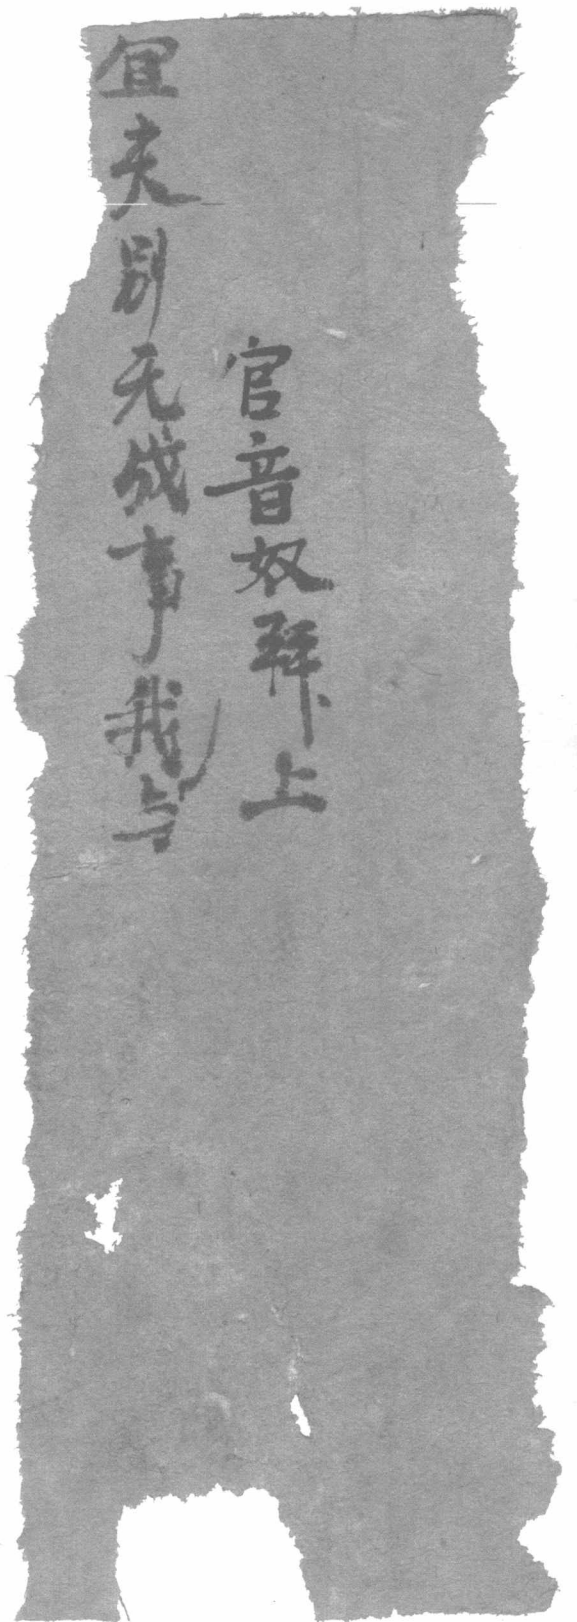 官音奴拜上
宜夫别无成事我与